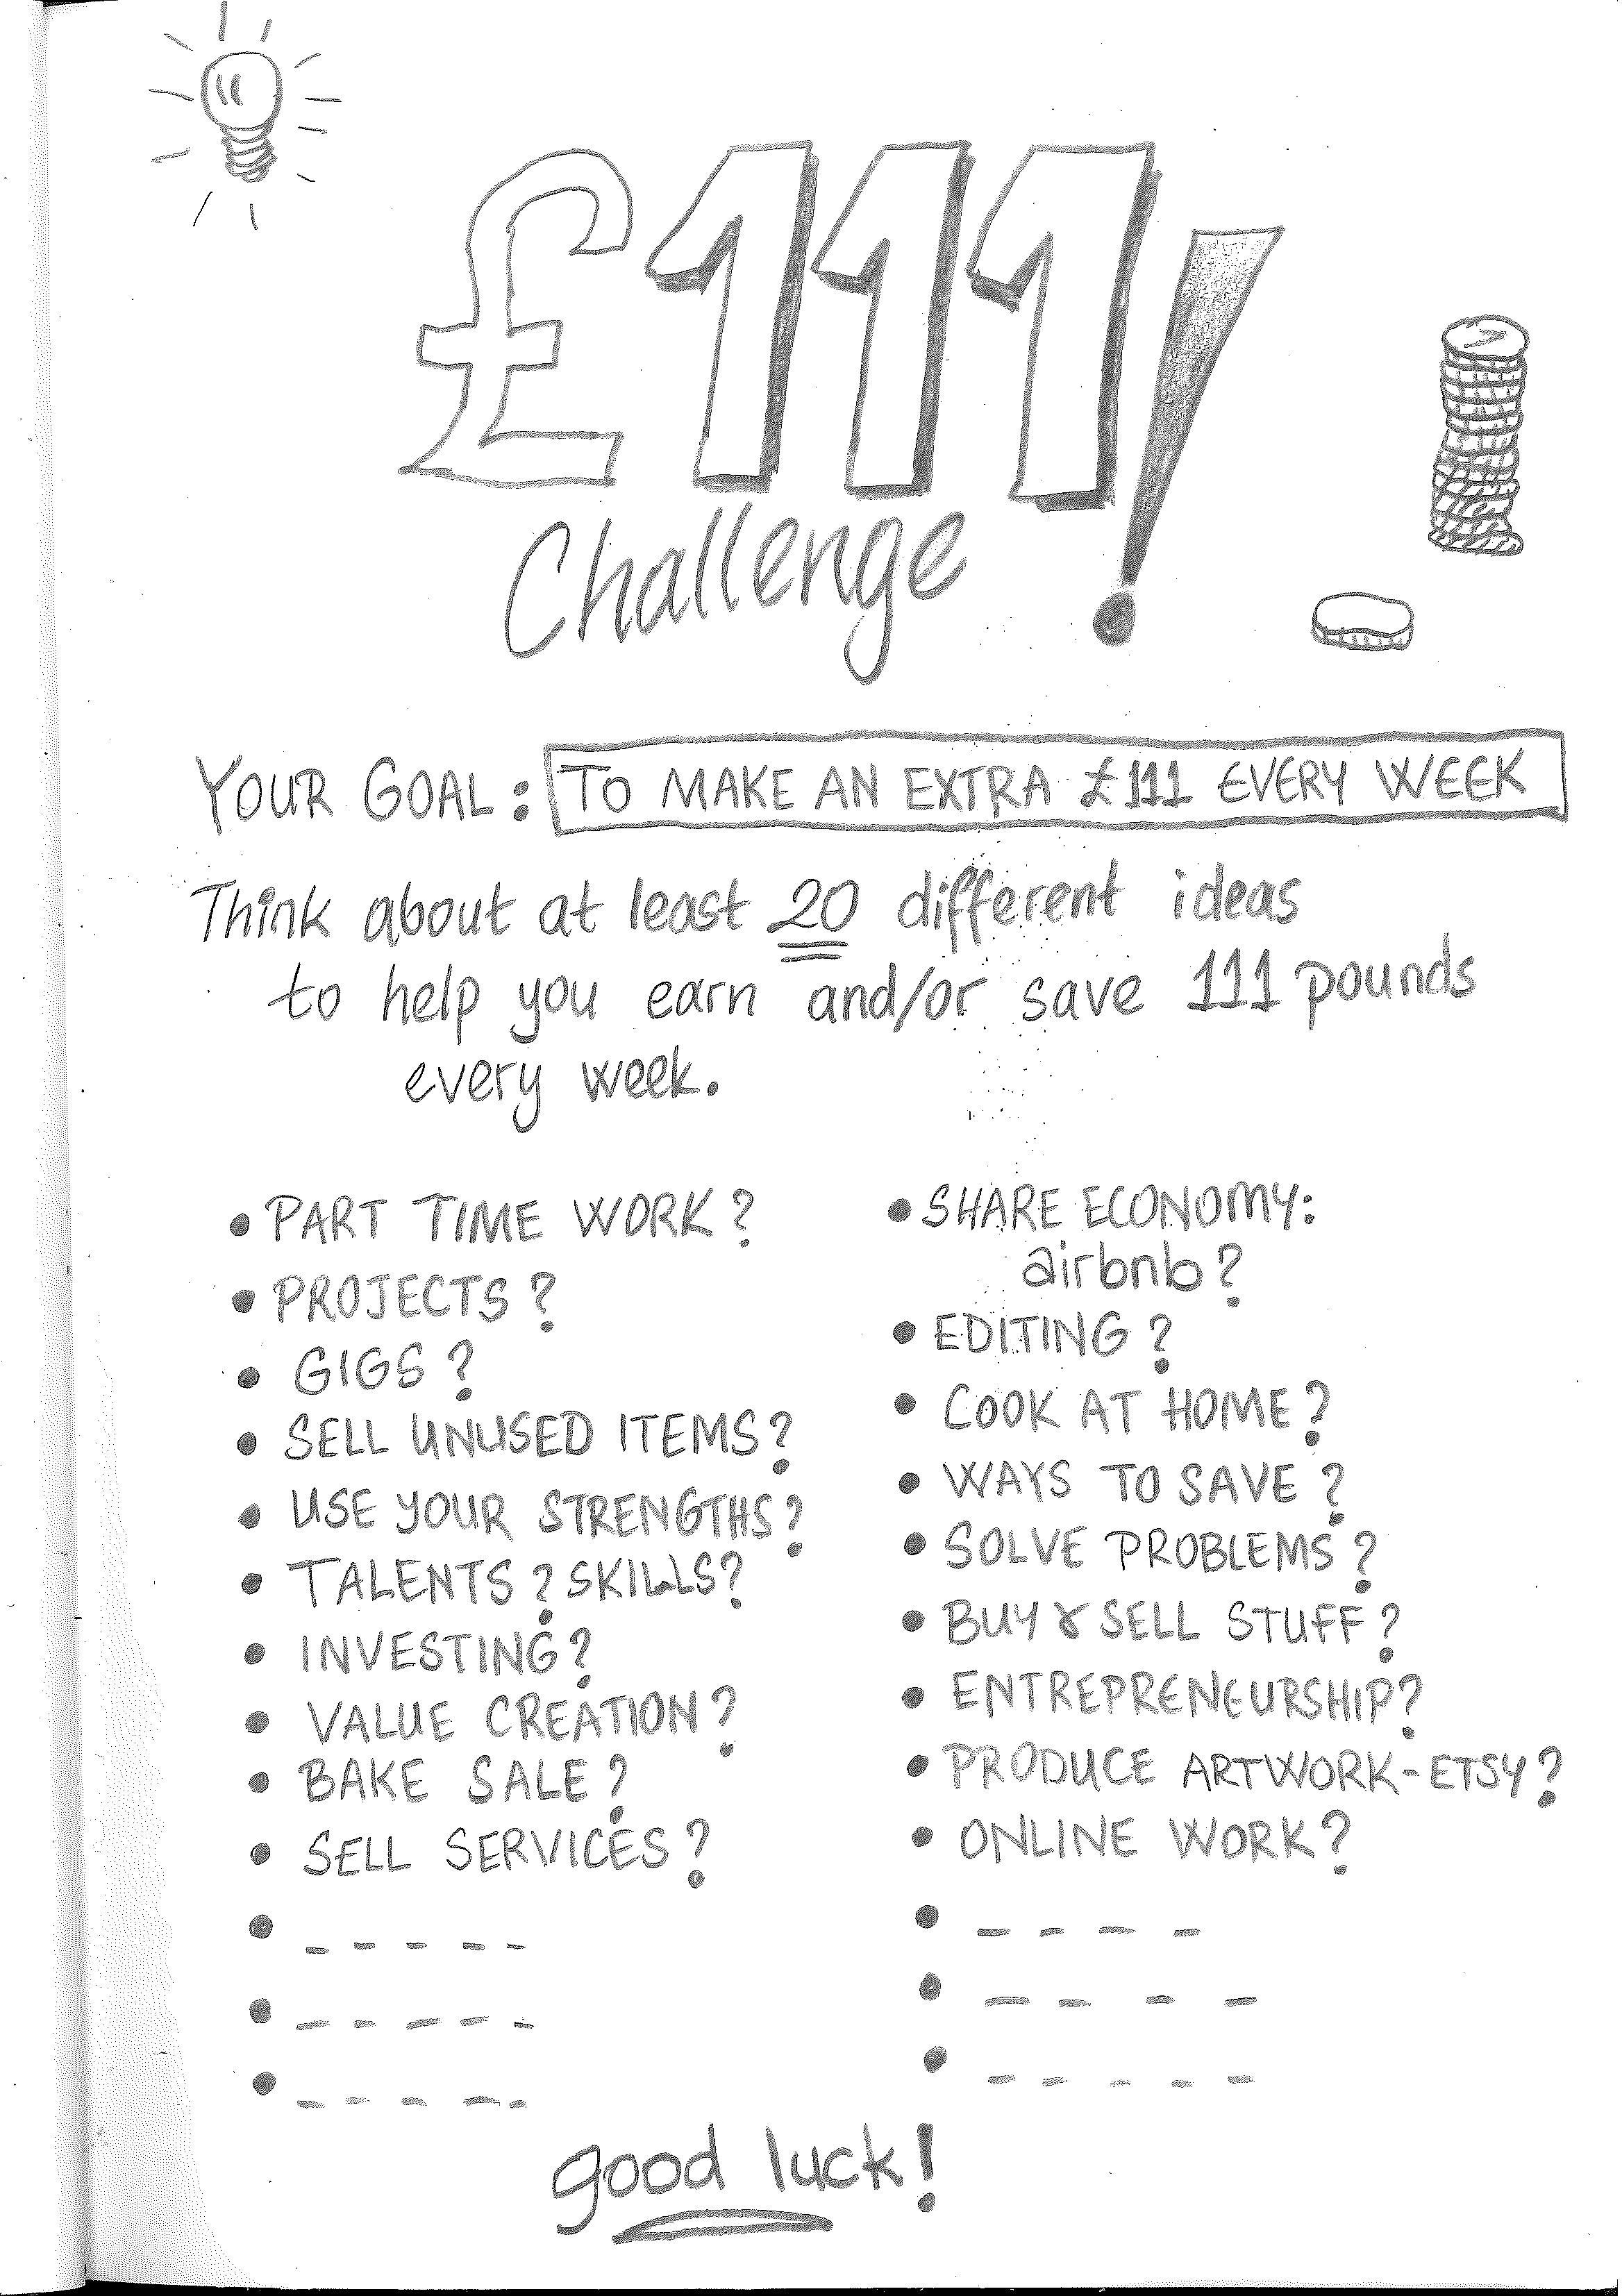 £111!
Challenge
YOUR GOAL: TO MAKE AN EXTRA £111 EVERY WEEK
Think about at least 20 different ideas
to help you earn and/or save 111 pounds
every week.
• PART TIME WORK?
• PROJECTS?
• GIGS?
• SELL UNUSED ITEMS?
• USE YOUR STRENGTHS?
• TALENTS? SKILLS?
• INVESTING?
• VALUE CREATION?
• BAKE SALE?
• SELL SERVICES?
• _ _ _ _ _
• _ _ _ _ _
• _ _ _ _ _
• SHARE ECONOMY:
airbnb?
• EDITING?
• COOK AT HOME?
• WAYS TO SAVE?
• SOLVE PROBLEMS?
• BUY & SELL STUFF?
• ENTREPRENEURSHIP?
• PRODUCE ARTWORK-ETSY?
• ONLINE WORK?
• _ _ _ _
• _ _ _ _
• _ _ _ _ _
good luck!